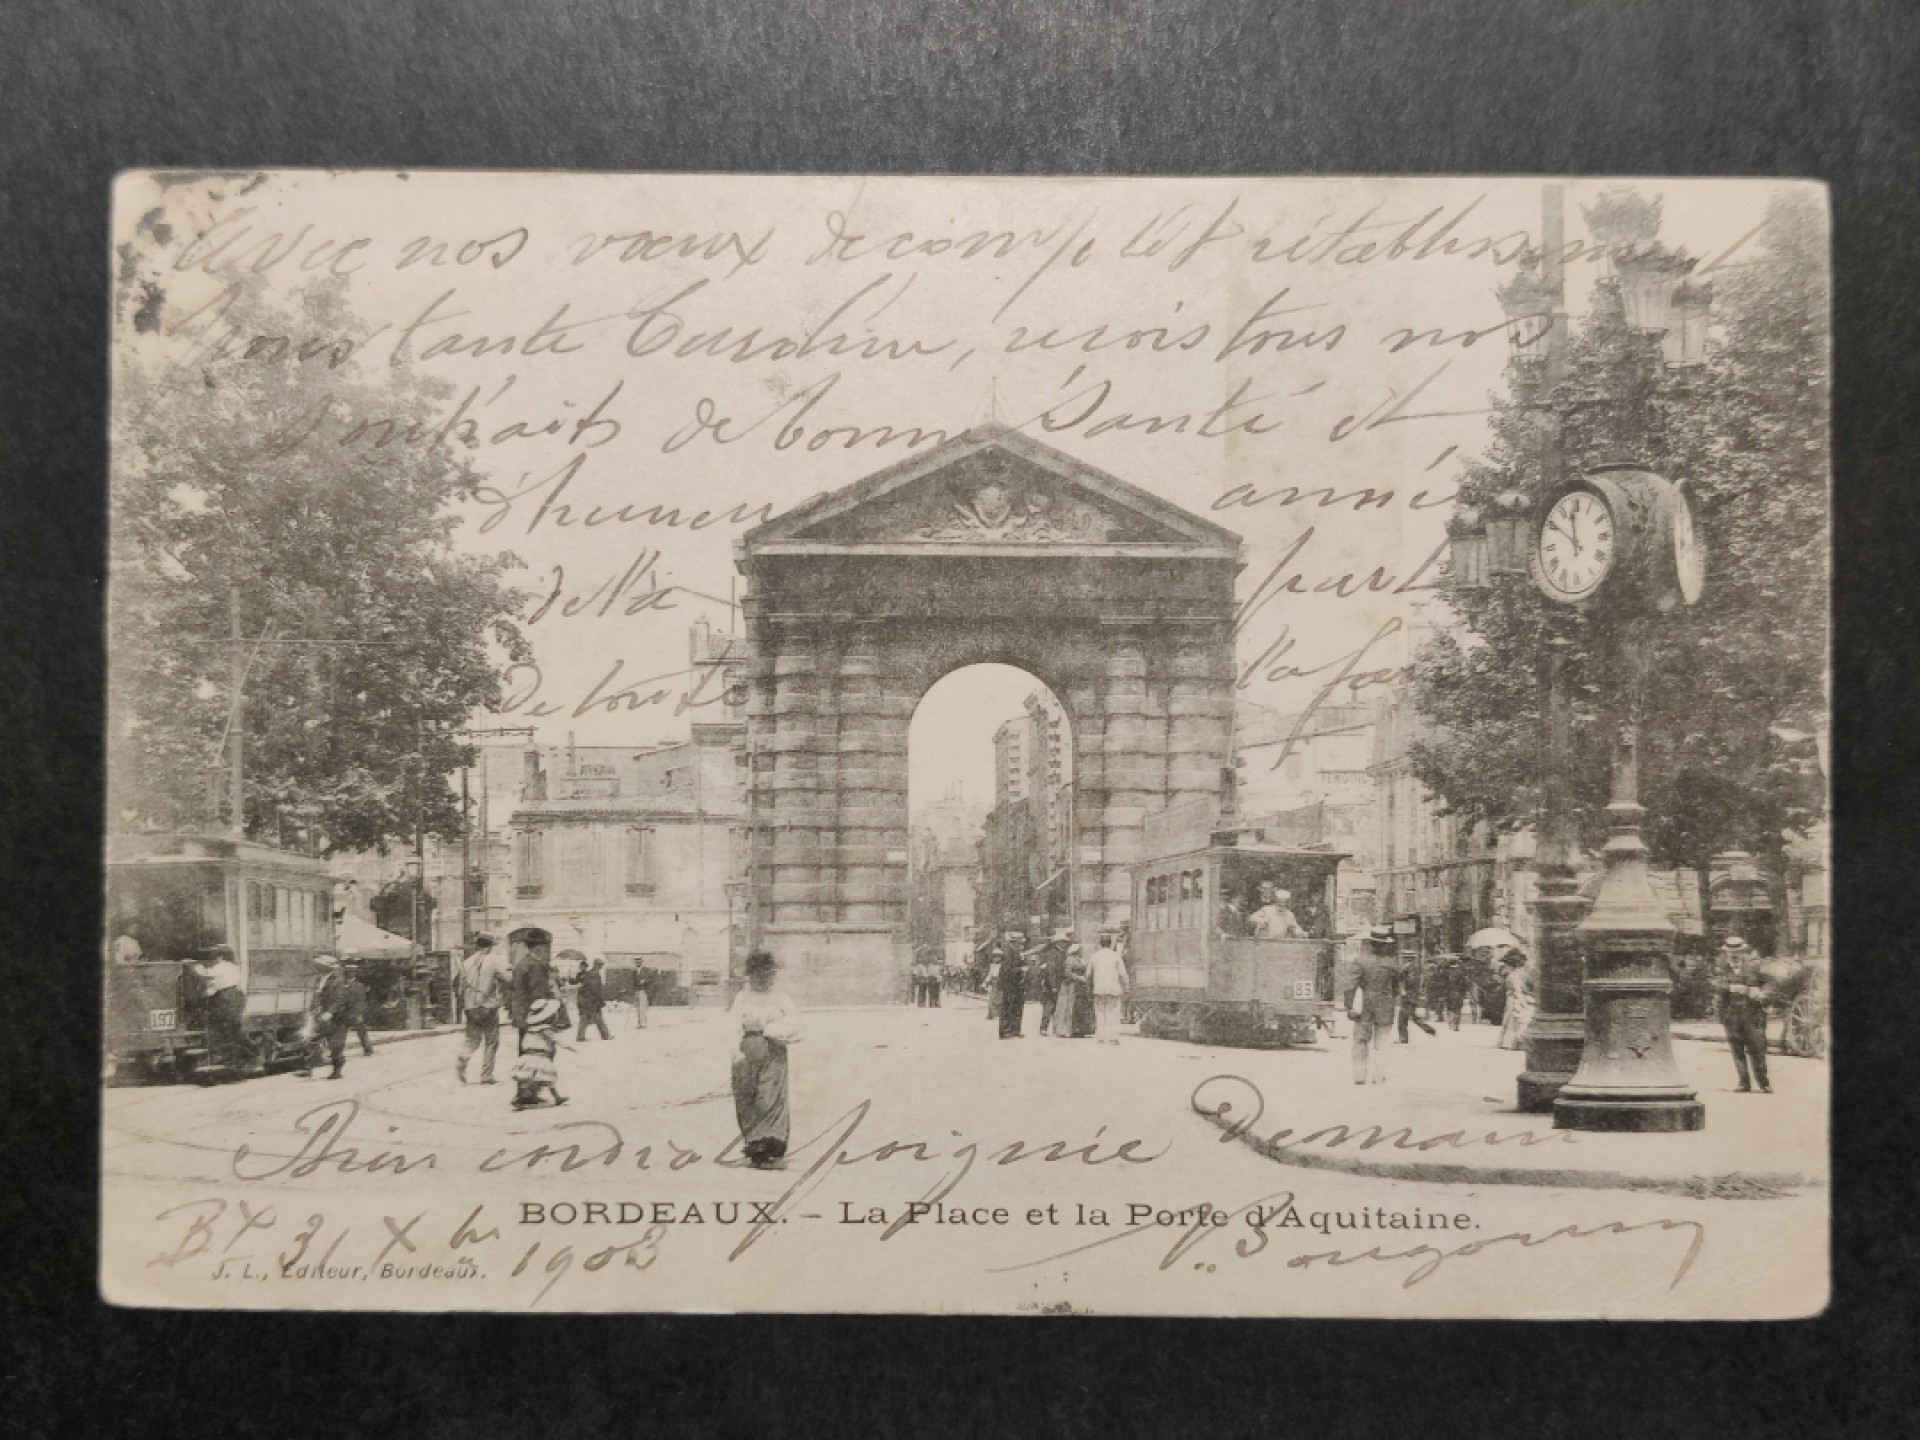 Avec nos vœux de complet rétablissement
pour tante Caroline, reçois tous nos
souhaits de bonne Santé et
d'heureuse année
de la part
de toute la fam
192
85
Bien cordiale poignée Demain
BORDEAUX. – La Place et la Porte d'Aquitaine.
Bx 31 Xbre 1903
J. L., Editeur, Bordeaux.